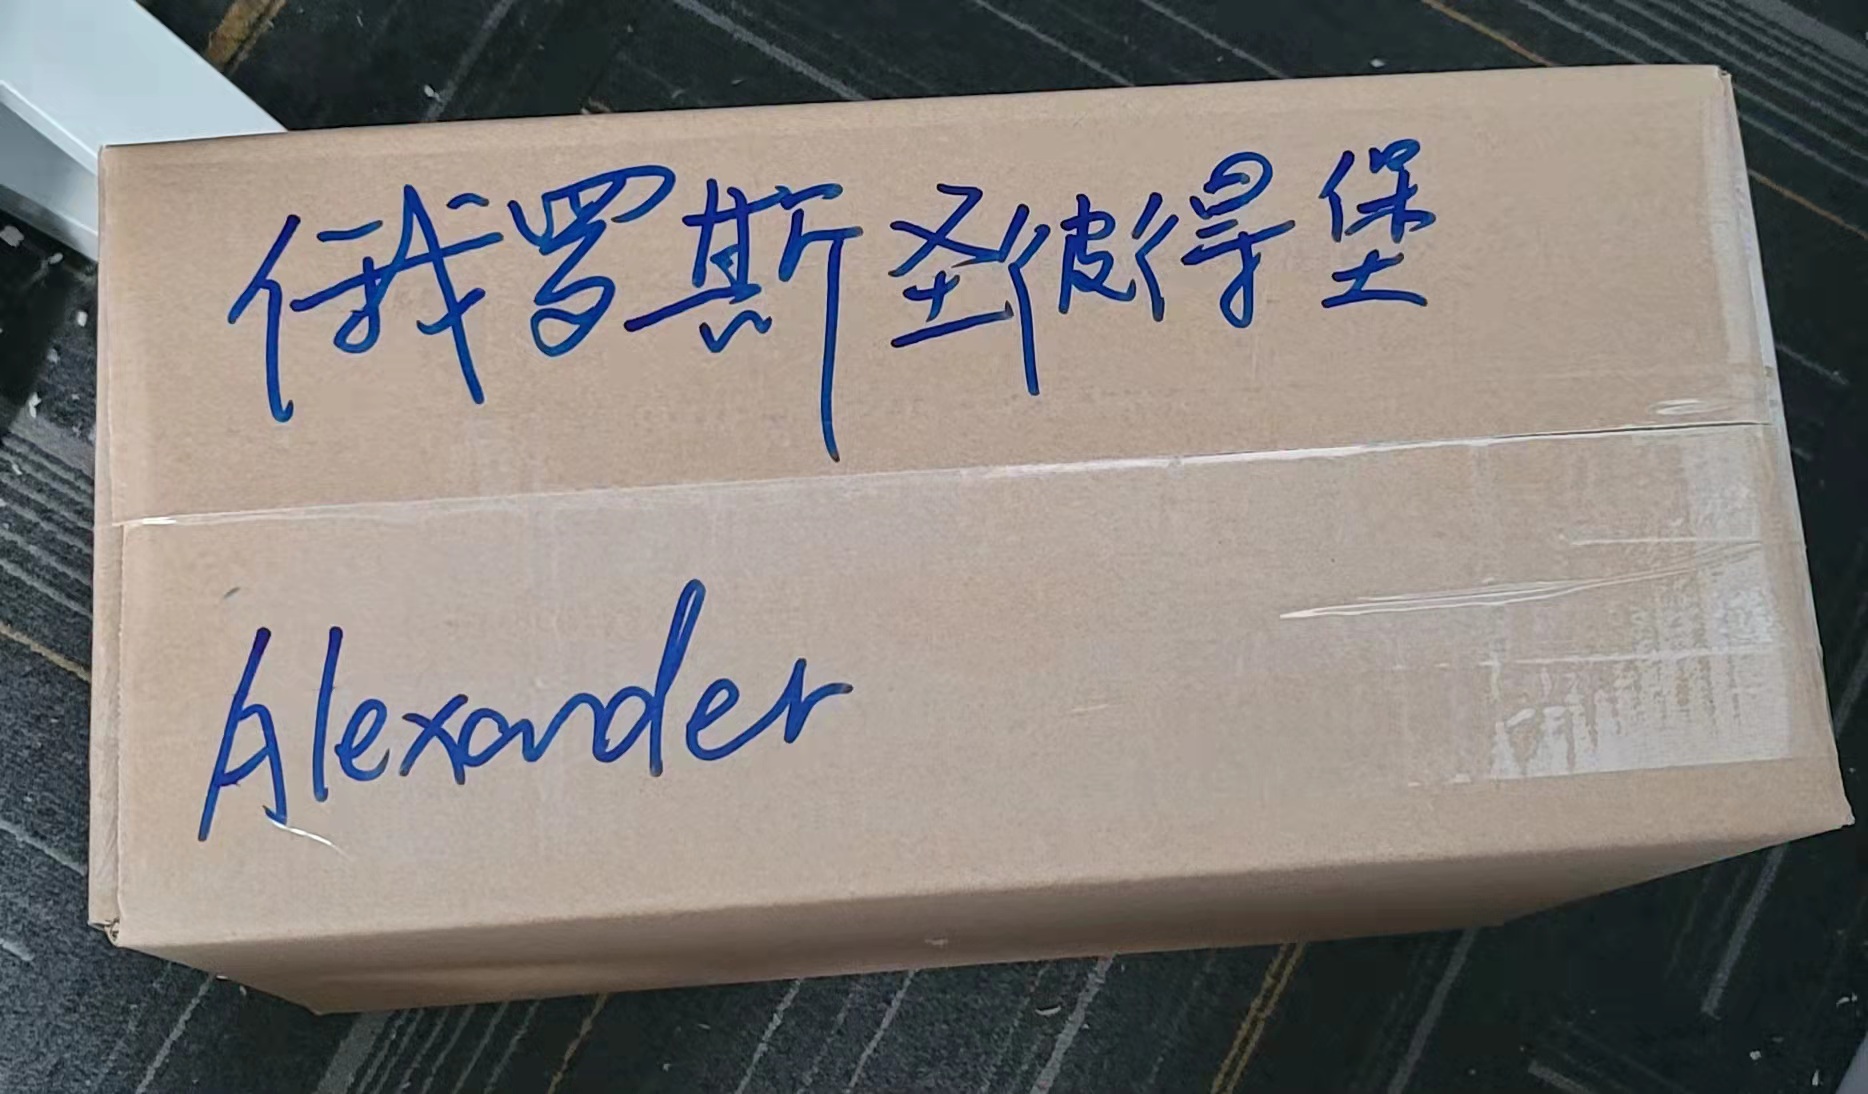 俄罗斯圣彼得堡
Alexander